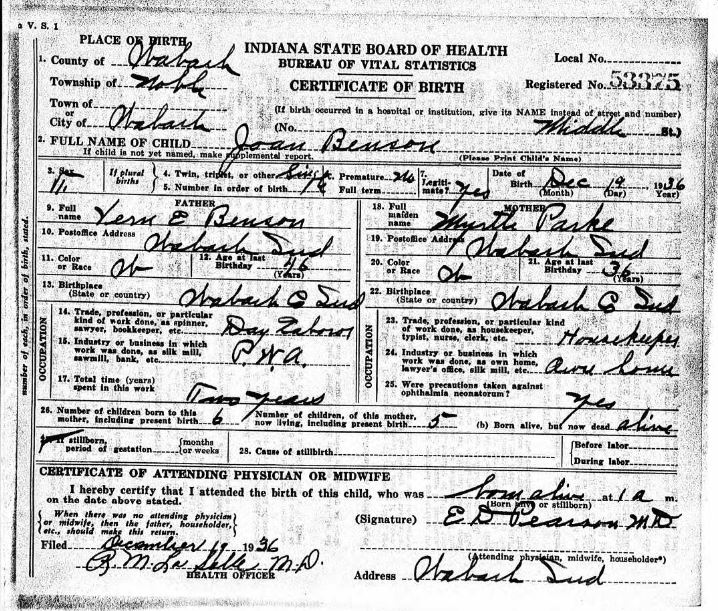 V. S. 1
PLACE OF BIRTH
INDIANA STATE BOARD OF HEALTH
BUREAU OF VITAL STATISTICS
CERTIFICATE OF BIRTH
Local No.
Registered No. 53375
1. County of Wabash
Township of Noble
Town of
or
City of Wabash
(If birth occurred in a hospital or institution, give its NAME instead of street and number)
(No. Middle St.)
2. FULL NAME OF CHILD Joan Benson
If child is not yet named, make supplemental report. (Please Print Child's Name)
3. Sex
If plural births
4. Twin, triplet, or other Single
5. Number in order of birth
Premature No
Full term
7. Legitimate? Yes
Date of Birth Dec 19 1936
(Month) (Day) Year)
FATHER
9. Full name Vern E Benson
10. Postoffice Address Wabash Ind
11. Color or Race W
12. Age at last Birthday 46 (Years)
13. Birthplace (State or country) Wabash C Ind
OCCUPATION
14. Trade, profession, or particular kind of work done, as spinner, sawyer, bookkeeper, etc. Day Labor
15. Industry or business in which work was done, as silk mill, sawmill, bank, etc. P.W.A.
17. Total time (years) spent in this work Two years
MOTHER
18. Full maiden name Myrtle Parke
19. Postoffice Address Wabash Ind
20. Color or Race W
21. Age at last Birthday 36 (Years)
22. Birthplace (State or country) Wabash C Ind
OCCUPATION
23. Trade, profession, or particular kind of work done, as housekeeper, typist, nurse, clerk, etc. Housekeeper
24. Industry or business in which work was done, as own home, lawyer's office, silk mill, etc. home
25. Were precautions taken against ophthalmia neonatorum? yes
26. Number of children born to this mother, including present birth 6
Number of children, of this mother, now living, including present birth 5
(b) Born alive, but now dead alive
If stillborn, period of gestation {months or weeks
28. Cause of stillbirth
Before labor
During labor
CERTIFICATE OF ATTENDING PHYSICIAN OR MIDWIFE
I hereby certify that I attended the birth of this child, who was born alive at 1 a m.
on the date above stated.
(Born alive or stillborn)
{When there was no attending physician or midwife, then the father, householder, etc., should make this return.}
(Signature) E D Pearson MD
(Attending physician, midwife, householder*)
Filed December 19 1936
R M La Salle M.D.
HEALTH OFFICER
Address Wabash Ind
number of each, in order of birth, stated.